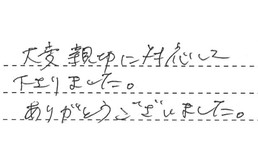 大変親切に対応して
下さりました。
ありがとうございました。